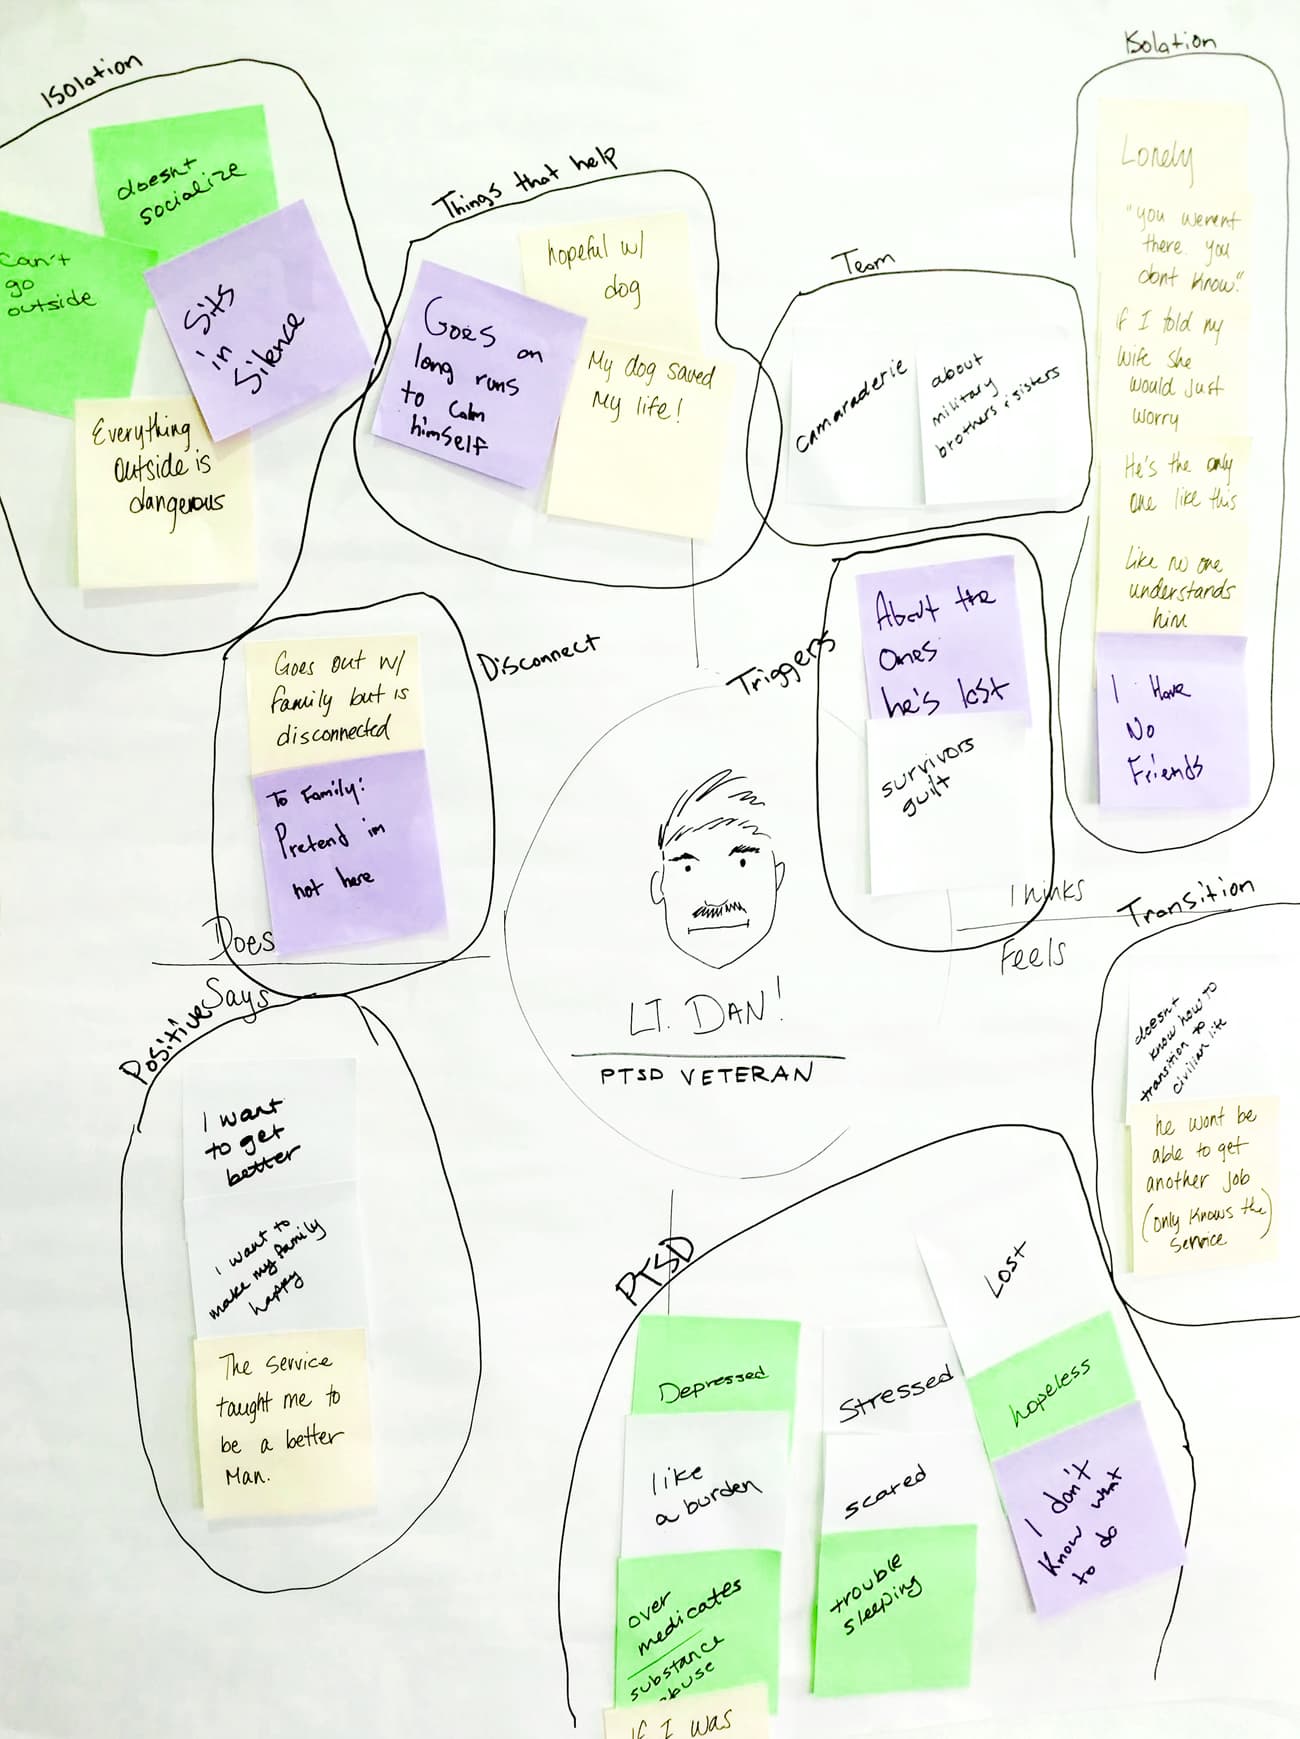 Isolation
doesnt
socialize
can't
go
outside
Sits
in
Silence
Everything
outside is
dangerous
Things that help
hopeful w/
dog
Goes on
long runs
to calm
himself
My dog saved
My life!
Team
camaraderie
about
military
brothers & sisters
Isolation
Lonely
"you werent
there. you
dont know."
if I told my
wife she
would just
worry
He's the only
one like this
Like no one
understands
him
I Have
No
Friends
Disconnect
Goes out w/
family but is
disconnected
To Family:
Pretend im
not here
Triggers
About the
ones
he's lost
survivors
guilt
Does
Says
Thinks
Feels
LT. DAN!
PTSD VETERAN
Transition
doesnt
know how to
transition to
civilian life
he wont be
able to get
another job
(only knows the)
service
Positive
I want
to get
better
I want to
make my family
happy
The service
taught me to
be a better
Man.
PTSD
Depressed
like
a burden
over
medicates
substance
abuse
if I was
Stressed
scared
trouble
sleeping
Lost
hopeless
I don't
know what
to do